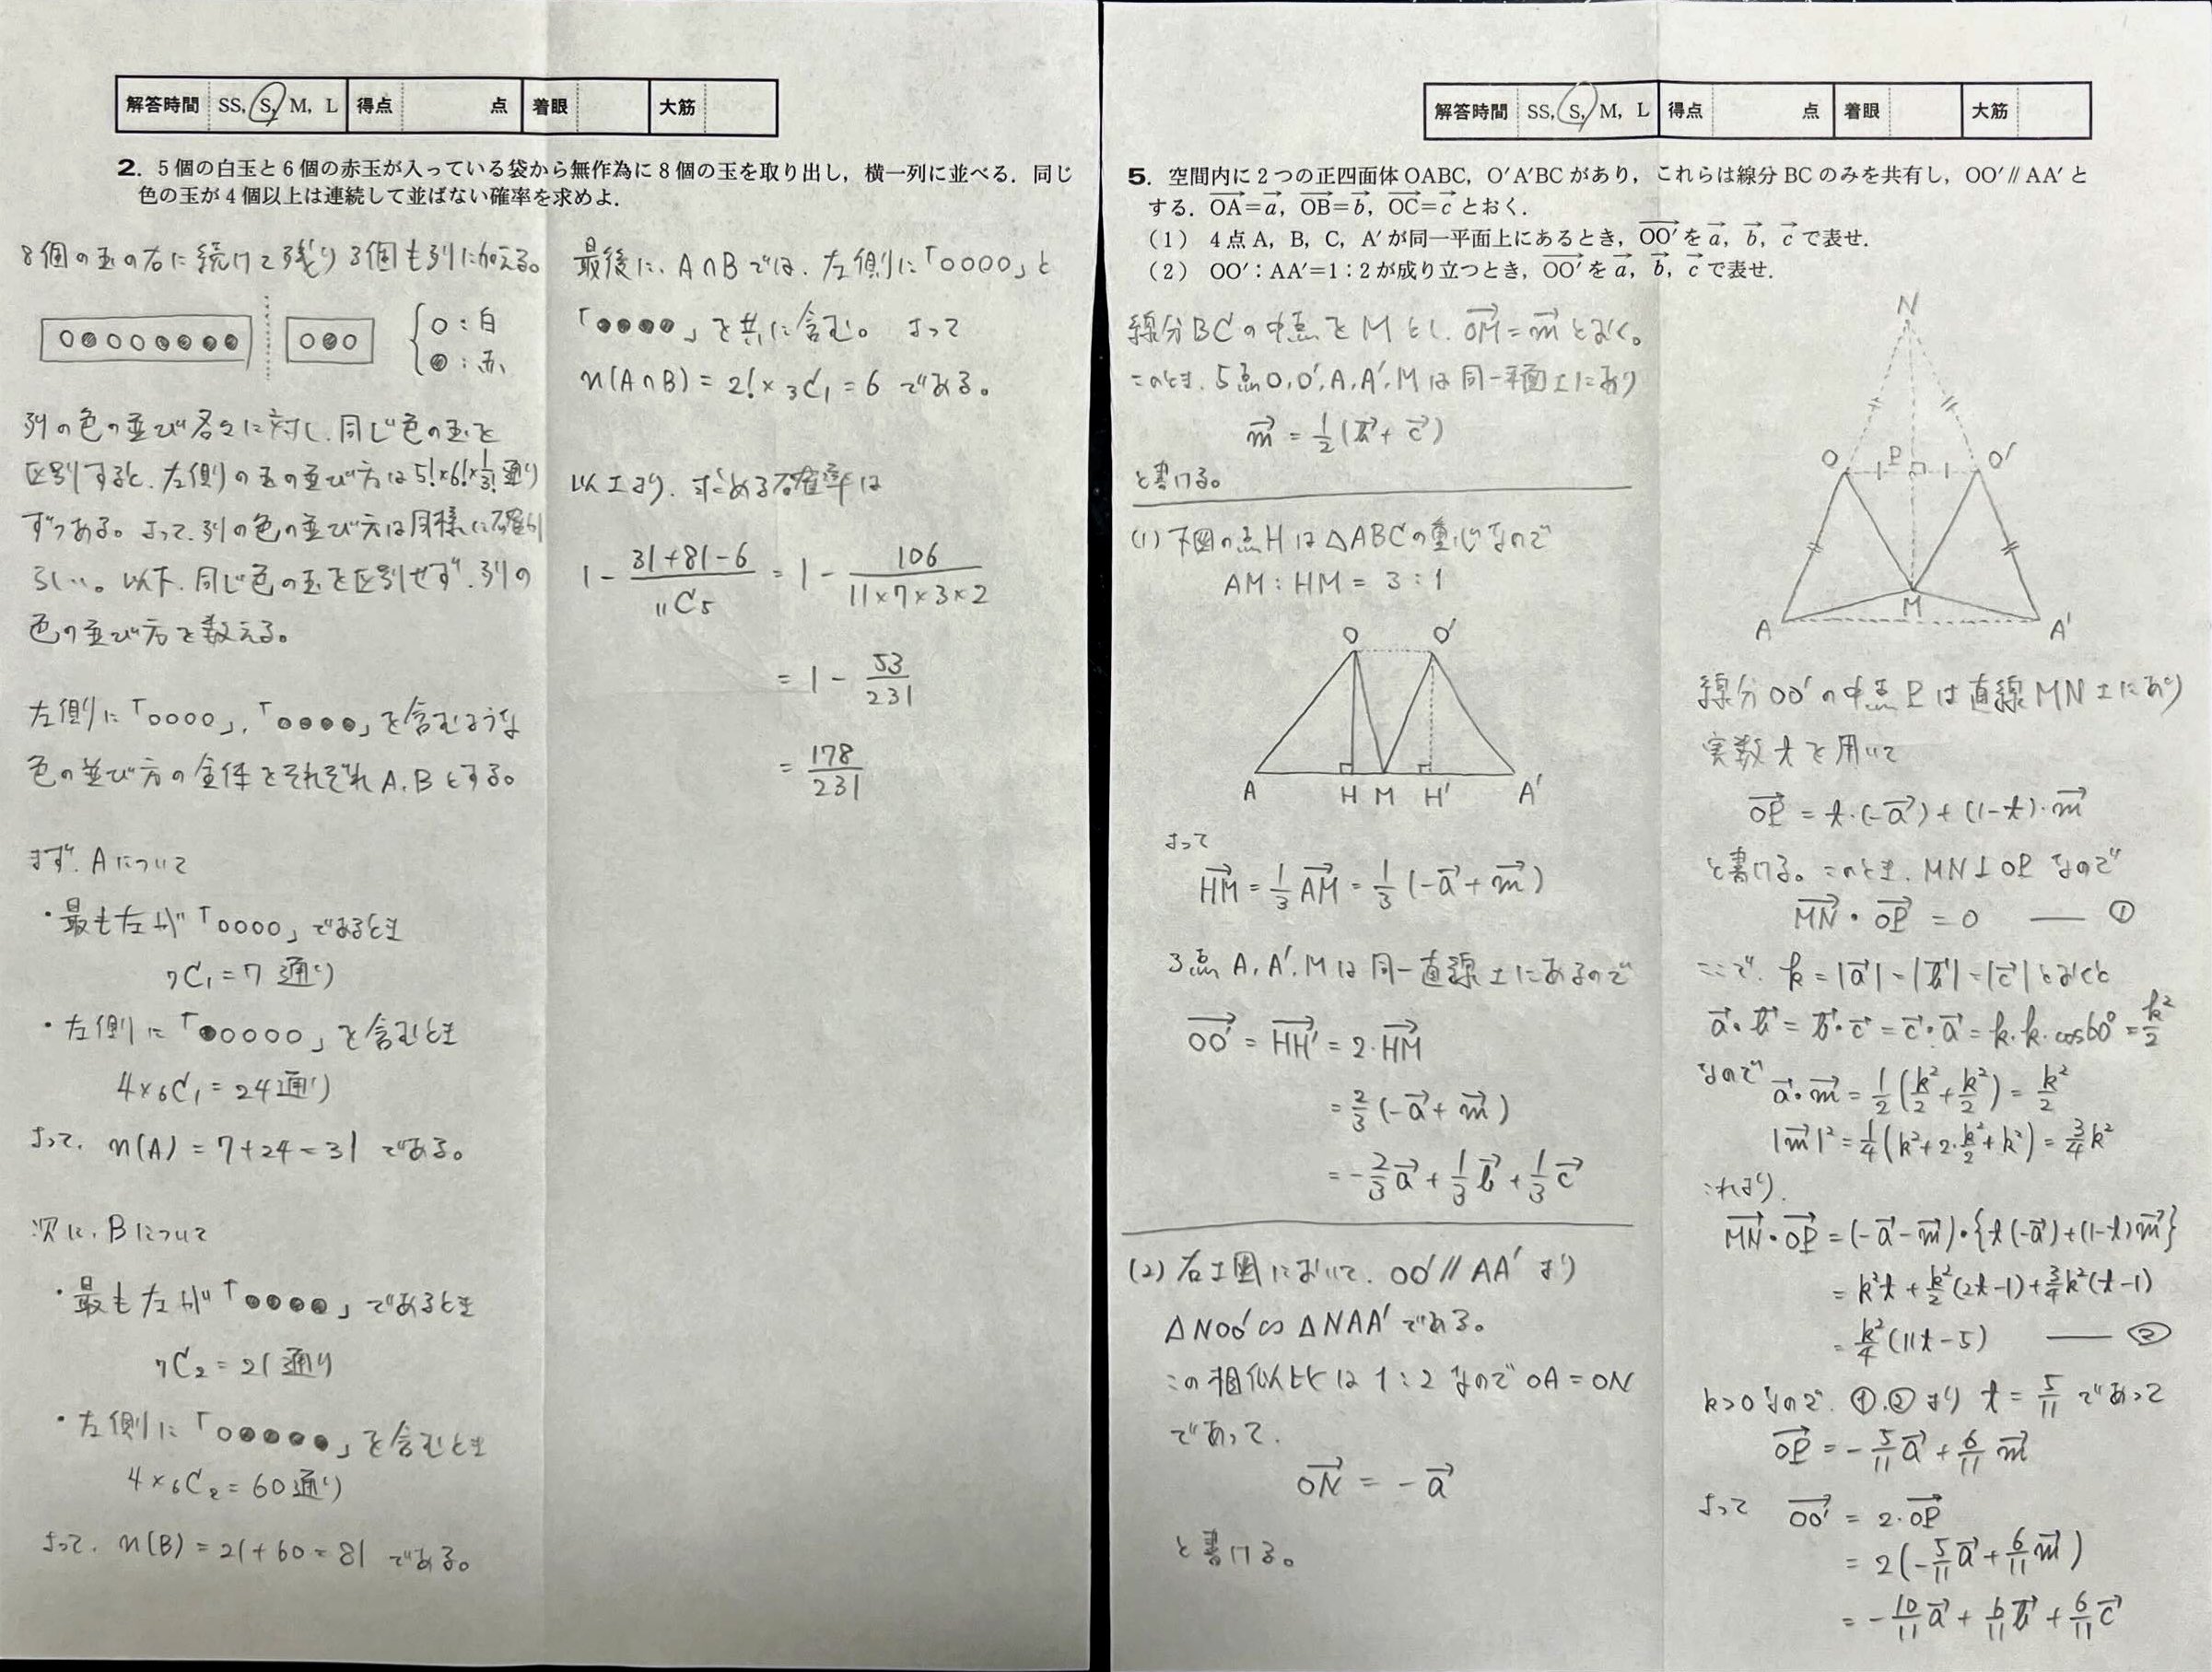 解答時間 SS, S, M, L 得点 点 着眼 大筋
2. 5個の白玉と6個の赤玉が入っている袋から無作為に8個の玉を取り出し，横一列に並べる．同じ
色の玉が4個以上は連続して並ばない確率を求めよ．
8個の玉の右に続けて残り3個も列に加える。
○●○○●●●● ○●○ { ○：白
●：赤
列の色の並び各々に対し、同じ色の玉を
区別すると、左側の玉の並び方は5!×6!×1/3!通り
ずつある。よって、列の色の並び方は同様に確から
しい。以下、同じ色の玉を区別せず、列の
色の並び方を数える。
左側に「○○○○」,「●●●●」を含むような
色の並び方の全体をそれぞれA,Bとする。
まず、Aについて
・最も左が「○○○○」であるとき
₇C₁ = 7 通り
・左側に「●○○○○」を含むとき
4×₆C₁ = 24通り
よって、n(A) = 7+24 = 31 である。
次に、Bについて
・最も左が「●●●●」であるとき
₇C₂ = 21 通り
・左側に「○●●●●」を含むとき
4×₆C₂ = 60通り
よって、n(B) = 21+60 = 81 である。
最後に、A∩Bでは、左側に「○○○○」と
「●●●●」を共に含む。 よって
n(A∩B) = 2!×₃C₁ = 6 である。
以上より、求める確率は
1 - (31+81-6)/₁₁C₅ = 1 - 106/(11×7×3×2)
= 1 - 53/231
= 178/231
解答時間 SS, S, M, L 得点 点 着眼 大筋
5. 空間内に2つの正四面体OABC，O′A′BCがあり，これらは線分BCのみを共有し，OO′∥AA′と
する．OA→=a→，OB→=b→，OC→=c→とおく．
（1） 4点A，B，C，A′が同一平面上にあるとき，OO′→をa→，b→，c→で表せ．
（2） OO′：AA′=1：2が成り立つとき，OO′→をa→，b→，c→で表せ．
線分BCの中点をMとし、OM→=m→とおく。
このとき、5点O,O′,A,A′,Mは同一平面上にあり
m→ = 1/2(b→+c→)
と書ける。
(1) 下図の点Hは△ABCの重心なので
AM : HM = 3 : 1
O O′
A H M H′ A′
よって
HM→ = 1/3 AM→ = 1/3(-a→+m→)
3点A,A′,Mは同一直線上にあるので
OO′→ = HH′→ = 2・HM→
= 2/3(-a→+m→)
= -2/3 a→ + 1/3 b→ + 1/3 c→
(2) 右上図において、OO′//AA′より
△NOO′∽△NAA′である。
この相似比は1:2なのでOA=ON
であって、
ON→ = -a→
と書ける。
N
O P O′
M
A A′
線分OO′の中点Pは直線MN上にあり
実数tを用いて
OP→ = t・(-a→)+(1-t)・m→
と書ける。このとき、MN⊥OPなので
MN→・OP→ = 0 — ①
ここで、k=|a→|=|b→|=|c→|とおくと
a→・b→=b→・c→=c→・a→=k・k・cos60°=k²/2
なので a→・m→ = 1/2(k²/2+k²/2) = k²/2
|m→|² = 1/4(k²+2・k²/2+k²) = 3/4 k²
これより、
MN→・OP→ = (-a→-m→)・{t(-a→)+(1-t)m→}
= k²t + k²/2(2t-1) + 3/4 k²(t-1)
= k²/4(11t-5) — ②
k>0なので、①,②より t = 5/11 であって
OP→ = -5/11 a→ + 6/11 m→
よって OO′→ = 2・OP→
= 2(-5/11 a→ + 6/11 m→)
= -10/11 a→ + 6/11 b→ + 6/11 c→